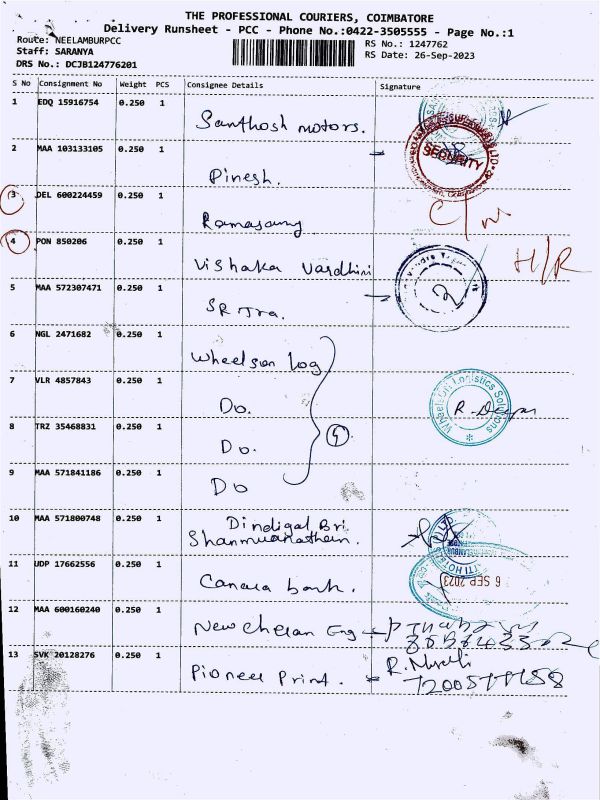 THE PROFESSIONAL COURIERS, COIMBATORE
Delivery Runsheet - PCC - Phone No.:0422-3505555 - Page No.:1
Route: NEELAMBURPCC
RS No.: 1247762
Staff: SARANYA
RS Date: 26-Sep-2023
DRS No.: DCJB124776201
S No Consignment No Weight PCS Consignee Details Signature
1 EDQ 15916754 0.250 1 Santhosh motors.
2 MAA 103133105 0.250 1 Dinesh.
SECURITY
3 DEL 600224459 0.250 1 Ramasamy
4 PON 850206 0.250 1 Vishaka Vardhini H/R
5 MAA 572307471 0.250 1 SR Tra.
6 NGL 2471682 0.250 1 Wheelson Log
7 VLR 4857843 0.250 1 Do.
Wheelson Logistics Solutions
8 TRZ 35468831 0.250 1 Do.
9 MAA 571841186 0.250 1 Do
10 MAA 571800748 0.250 1 Dindigal Bri
11 UDP 17662556 0.250 1 Canara bank.
6 SEP 2023
12 MAA 600160240 0.250 1 New Cheran Eng
13 SVK 20128276 0.250 1 Pioneer Print.